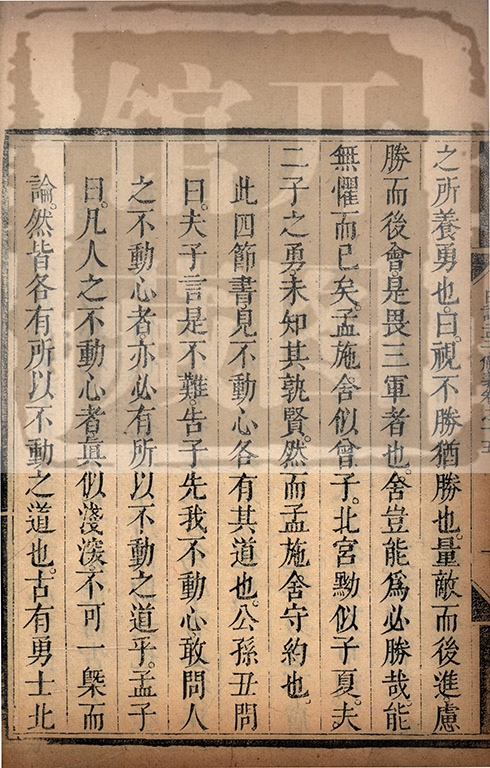 之所養勇也。曰。視不勝猶勝也。量敵而後進慮
勝而後會。是畏三軍者也。舍豈能爲必勝哉。能
無懼而已矣。孟施舍似曾子。北宮黝似子夏。夫
二子之勇未知其孰賢。然而孟施舍守約也。
此四節書見不動心各有其道也。公孫丑問
曰。夫子言是不難。告子先我不動心。敢問人
之不動心者亦必有所以不動之道乎。孟子
曰。凡人之不動心者眞似淺深。不可一槩而
論。然皆各有所以不動之道也。古有勇士北